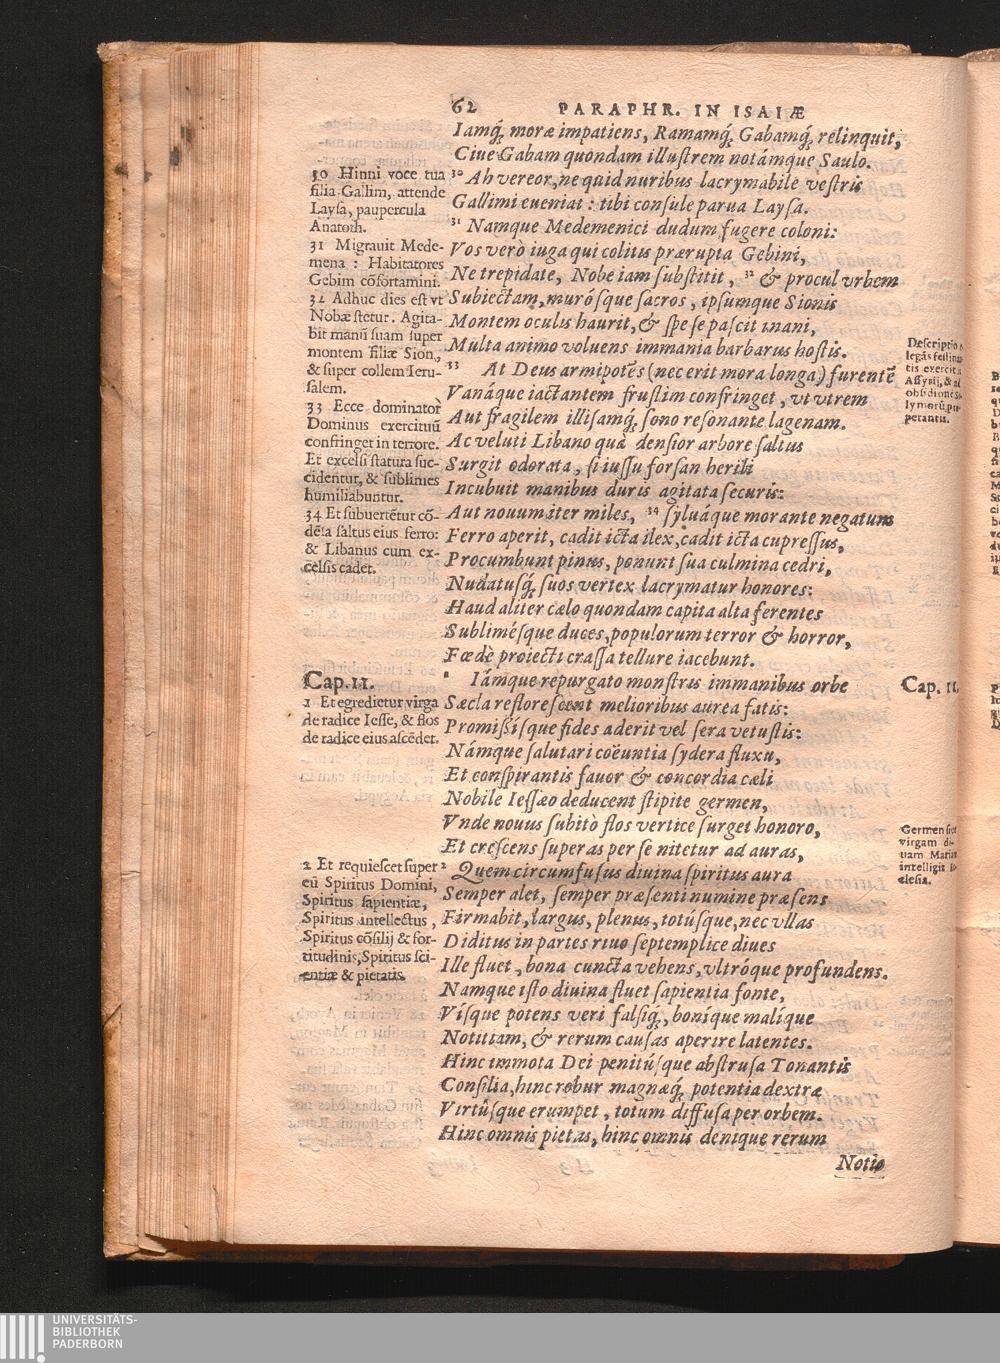 62 PARAPHR. IN ISAIÆ
Iamq́; moræ impatiens, Ramamq́; Gabamq́; relinquit,
Ciue Gabam quondam illuſtrem notámque Saulo.
³⁰ Ah vereor, ne quid nuribus lacrymabile veſtris
Gallimi eueniat : tibi conſule parua Layſa.
³¹ Namque Medemenici dudum fugere coloni:
Vos verò iuga qui colitis prærupta Gebini,
Ne trepidate, Nobe iam ſubſtitit, ³² & procul vrbem
Subiectam, muróſque ſacros, ipſumque Sionis
Montem oculis haurit, & ſpe ſe paſcit inani,
Multa animo voluens immania barbarus hoſtis.
³³ At Deus armipotẽs (nec erit mora longa) furentẽ
Vanáque iactantem fruſtim confringet, vt vtrem
Aut fragilem illiſamq́; ſono reſonante lagenam.
Ac veluti Libano quà denſior arbore ſaltus
Surgit odorata, ſi iuſſu forſan herili
Incubuit manibus duris agitata ſecuris:
Aut nouum iter miles, ³⁴ ſyluáque morante negatum
Ferro aperit, cadit icta ilex, cadit icta cupreſſus,
Procumbunt pinus, ponunt ſua culmina cedri,
Nudatuſq́; ſuos vertex lacrymatur honores:
Haud aliter cælo quondam capita alta ferentes
Subliméſque duces, populorum terror & horror,
Fœdè proiecti craſſa tellure iacebunt.
¹ Iámque repurgato monſtris immanibus orbe
Sæcla refloreſcent melioribus aurea fatis:
Promiſſiſque fides aderit vel ſera vetuſtis:
Námque ſalutari coëuntia ſydera fluxu,
Et conſpirantis fauor & concordia cæli
Nobile Ieſſæo deducent ſtipite germen,
Vnde nouus ſubitò flos vertice ſurget honoro,
Et creſcens ſuperas per ſe nitetur ad auras,
² Quem circumfuſus diuina ſpiritus aura
Semper alet, ſemper præſenti numine præſens
Firmabit, largus, plenus, totúſque, nec vllas
Diditus in partes riuo ſeptemplice diues
Ille fluet, bona cuncta vehens, vltróque profundens.
Namque iſto diuina fluet ſapientia fonte,
Viſque potens veri falſiq́;, boníque malíque
Notitiam, & rerum cauſas aperire latentes.
Hinc immota Dei penitúſque abſtruſa Tonantis
Conſilia, hinc robur magnæq́; potentia dextræ
Virtûſque erumpet, totum diffuſa per orbem.
Hinc omnis pietas, hinc omnis denique rerum
Notio
30 Hinni voce tua
filia Gallim, attende
Layſa, paupercula
Anatoth.
31 Migrauit Mede-
mena : Habitatores
Gebim cõfortamini.
32 Adhuc dies eſt vt
Nobæ ſtetur. Agita-
bit manũ ſuam ſuper
montem filiæ Sion,
& ſuper collem Ieru-
ſalem.
33 Ecce dominator
Dominus exercituũ
confringet in terrore.
Et excelſi ſtatura ſuc-
cidentur, & ſublimes
humiliabuntur.
34 Et ſubuertẽtur cõ-
dẽſa ſaltus eius ferro:
& Libanus cum ex-
celſis cadet.
Cap. 11.
1 Et egredietur virga
de radice Ieſſe, & flos
de radice eius aſcẽdet.
2 Et requieſcet ſuper
eũ Spiritus Domini,
Spiritus ſapientiæ,
Spiritus intellectus,
Spiritus cõſilij & for-
titudinis, Spiritus ſci-
entiæ & pietatis.
Deſcriptio
tis exercit
Aſſyrij, &
perantis.
Cap. 11.
Germen ſiue
virgam di-
uam Mariã
intelligit
cleſia.
UNIVERSITÄTS-
BIBLIOTHEK
PADERBORN